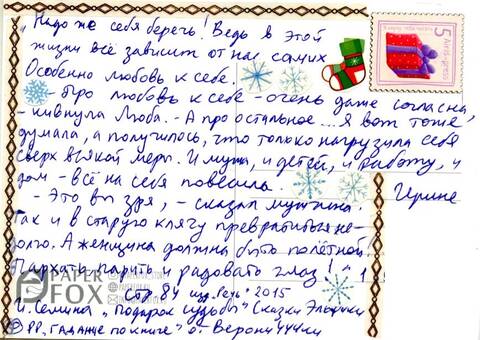 „Надо же себя беречь! Ведь в этой
жизни всё зависит от нас самих
Особенно любовь к себе.
- Про любовь к себе - очень даже согласна,
- кивнула Люба. - А про остальное... Я вот тоже
думала, а получилось, что только нагрузила себя
сверх всякой меры. И мужа, и детей, и работу, и
дом - всё на себя повесила.
- Это вы зря, - сказал мужчина.
Так и в старую клячу превратиться не-
долго. А женщина должна быть полётной!
Пархать парить и радовать глаз!"
стр. 84 изд. Речь" 2015
И. Семина „Подарок судьбы" Сказки Эльфики
РР „ГАДАНИЕ ПО КНИГЕ" от Верони444ки
Ирине
5
PAPER
FOX